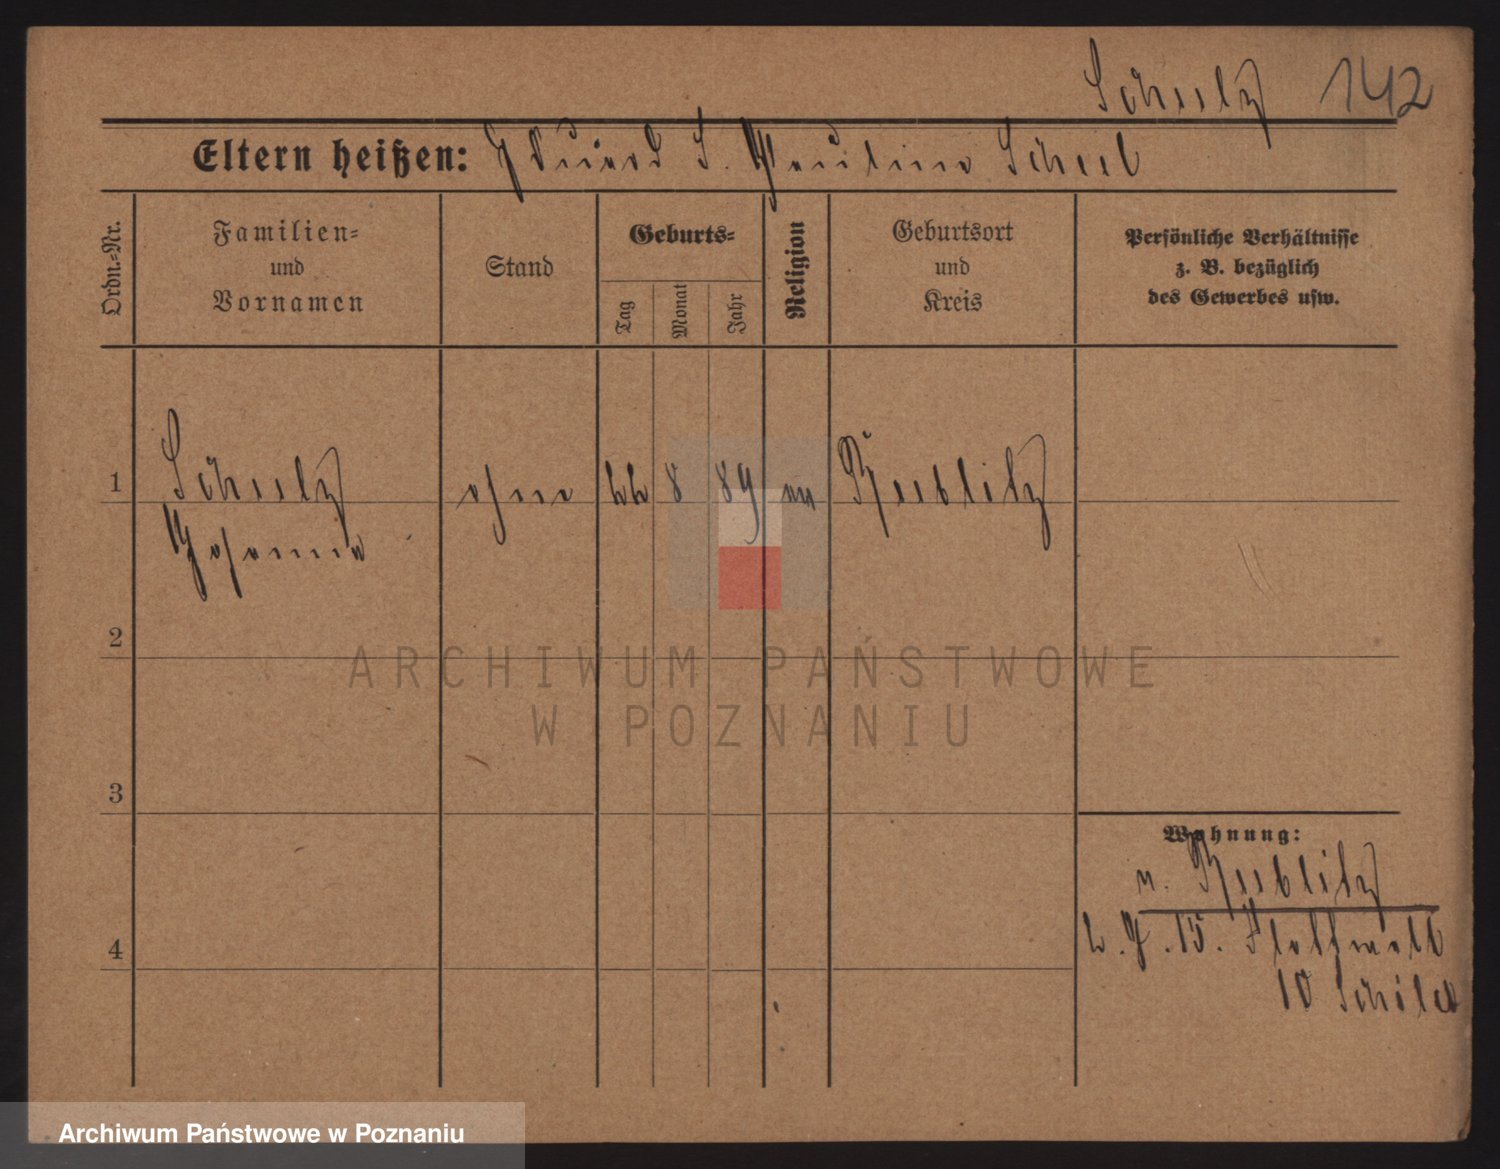 Schulz 142
Eltern heißen: Eduard u. Pauline Scheel
Ordn.-Nr.
Familien-
und
Vornamen
Stand
Geburts-
Tag
Monat
Jahr
Religion
Geburtsort
und
Kreis
Persönliche Verhältnisse
z. B. bezüglich
des Gewerbes usw.
1 Schulz ohne 22 8 89 ev Kublitz
Johanna
2
3
4
Wohnung:
n. Kublitz
2. 7. 15. Flottwell
10 Schild
ARCHIWUM PAŃSTWOWE
W POZNANIU
Archiwum Państwowe w Poznaniu